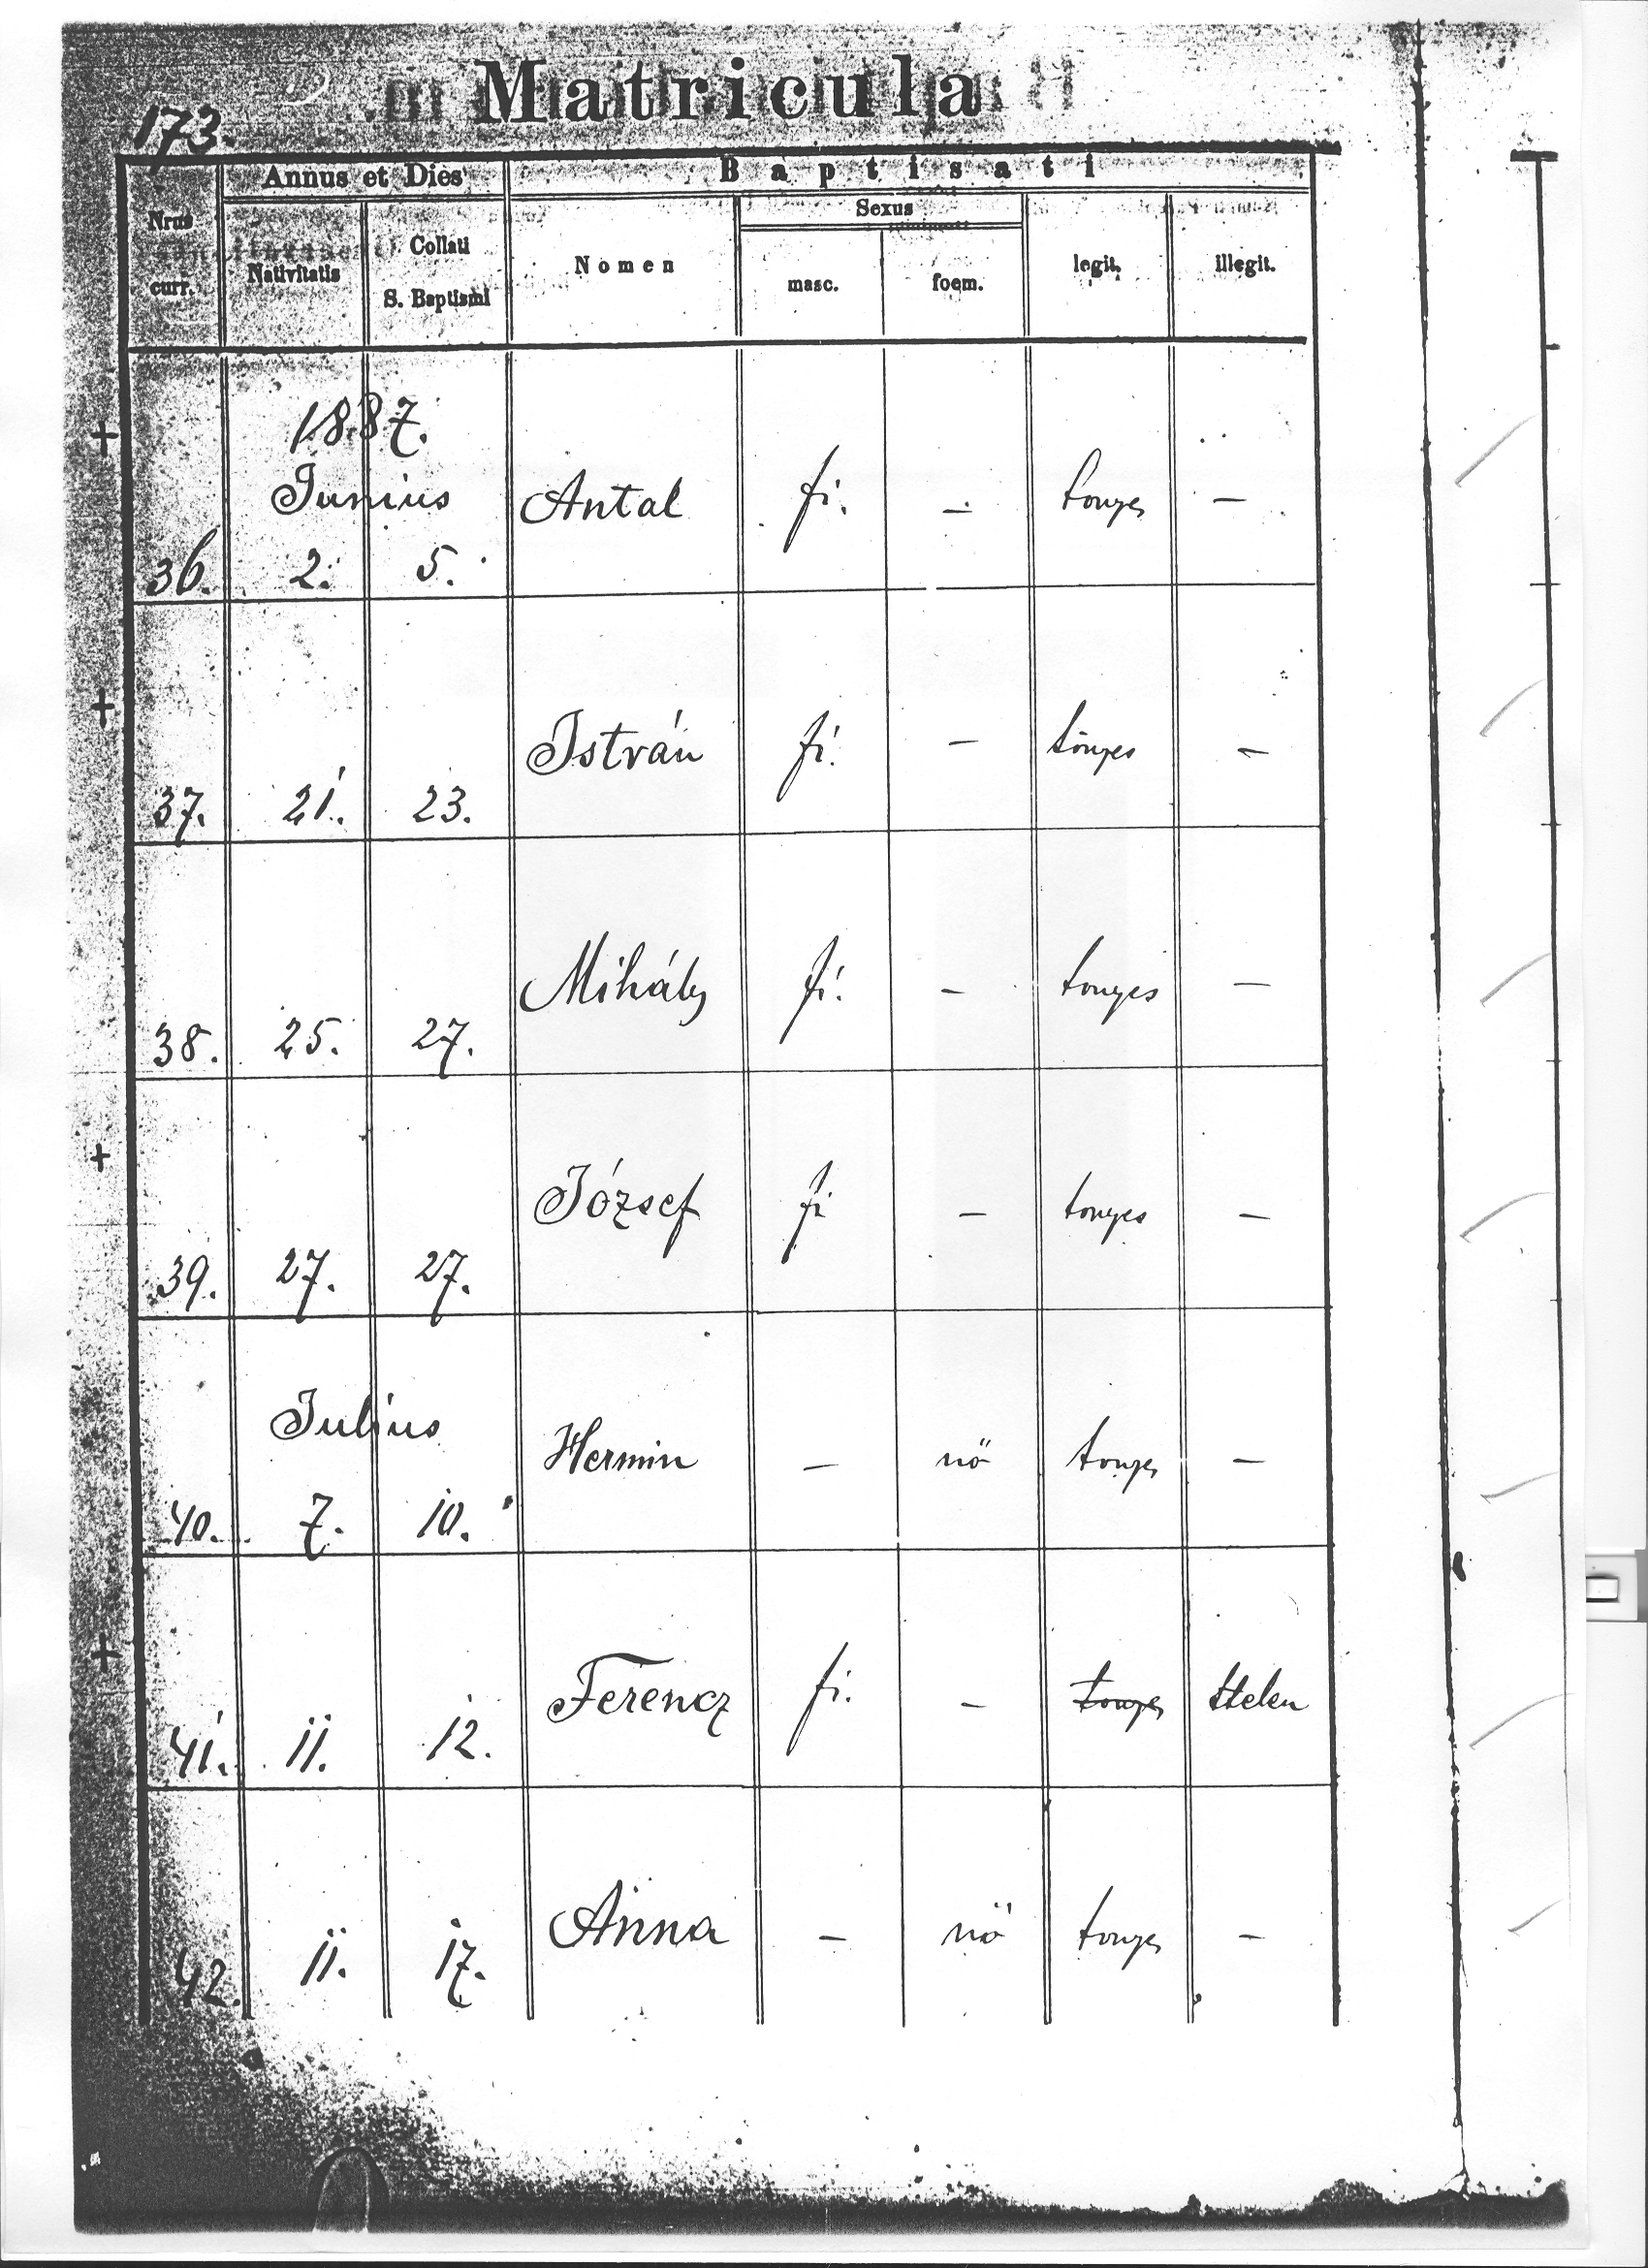 Matricula
173.
Annus et Dies
Baptisati
Nrus curr.
Nativitatis
Collati S. Baptismi
Nomen
Sexus
masc.
foem.
legit.
illegit.
1887.
Junius
36. 2. 5. Antal fi. — tvnyes —
37. 21. 23. István fi. — tvnyes —
38. 25. 27. Mihály fi. — tvnyes —
39. 27. 27. József fi — tvnyes —
Julius
40. 7. 10. Hermin — nő tvnyes —
41. 11. 12. Ferencz fi. — tvnyes ttelen
42. 11. 17. Anna — nő tvnyes —